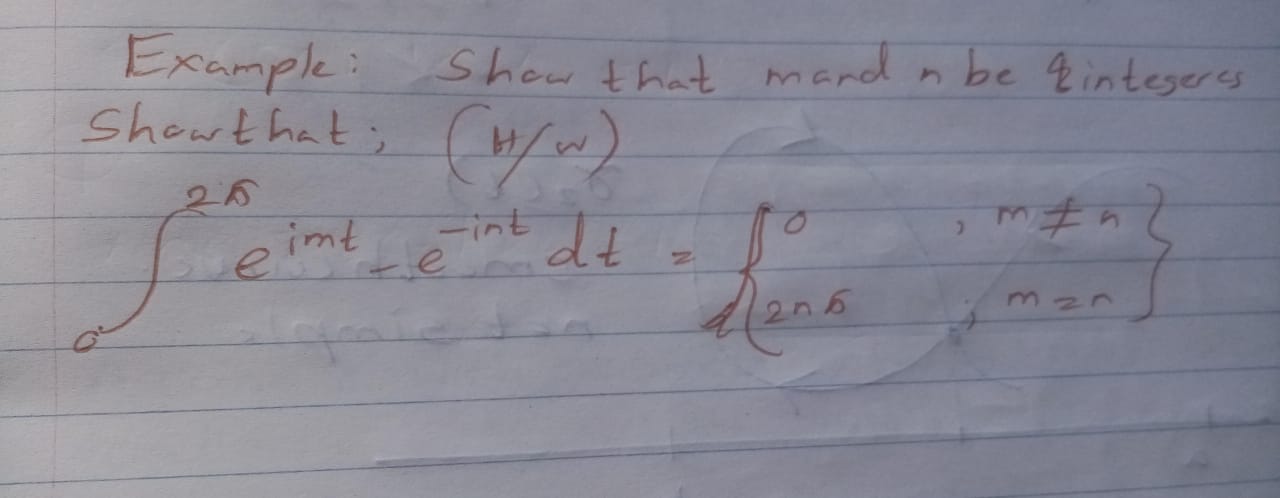 Example: Show that m and n be integeres
Show that; (H/W)
∫₀^{2π} e^{imt} - e^{-int} dt = { 0 , m ≠ n
2nπ ; m = n }